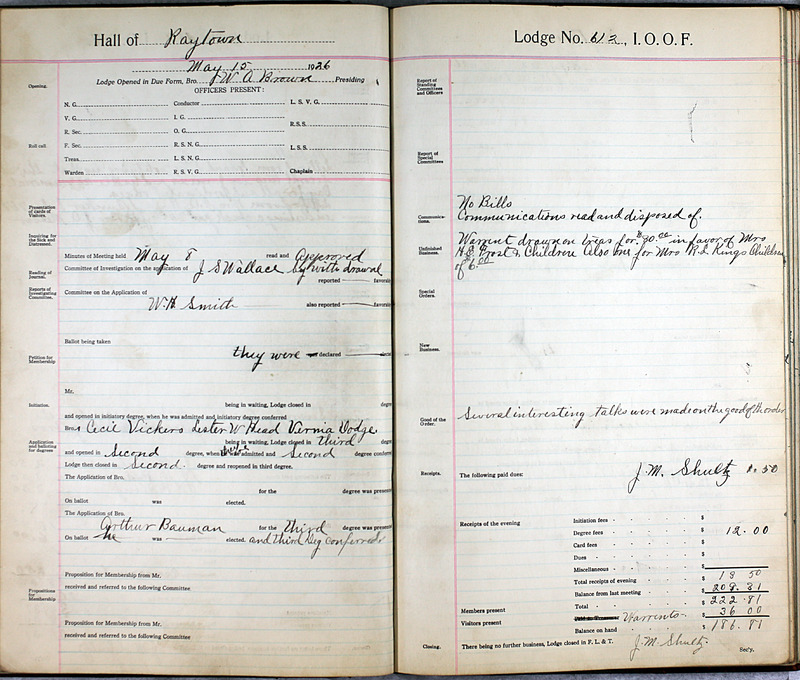 Hall of Raytown
May 15 1926
Lodge Opened in Due Form, Bro. J W A Brown Presiding
OFFICERS PRESENT:
Opening.
N. G. Conductor L. S. V. G.
V. G. I. G.
R. Sec. O. G. R.S.S.
Roll call.
F. Sec. R. S. N. G. L.S.S.
Treas. L. S. N. G.
Warden R. S. V. G. Chaplain
Presentation of cards of Visitors.
Inquiring for the Sick and Distressed.
Minutes of Meeting held May 8 read and approved
Reading of Journal.
Committee of Investigation on the application of J S Wallace by withdrawal
reported favorable
Reports of Investigating Committee.
Committee on the Application of
W. H. Smith also reported favorable
Ballot being taken
they were declared
Petition for Membership
Mr.
Initiation. being in waiting, Lodge closed in degree
and opened in initiatory degree, when he was admitted and initiatory degree conferred
Bros Cecil Vickers Lester W Head Vernia Dodge
Application and balloting for degrees
being in waiting, Lodge closed in third
and opened in Second degree, when they were admitted and Second degree conferred
Lodge then closed in Second degree and reopened in third degree.
The Application of Bro.
for the degree was presented
On ballot was elected.
The Application of Bro.
Arthur Bauman for the third degree was presented
On ballot he was elected. and third deg conferred
Propositions for Membership
Proposition for Membership from Mr.
received and referred to the following Committee
Proposition for Membership from Mr.
received and referred to the following Committee
Lodge No. 613, I. O. O. F.
Report of Standing Committees and Officers
Report of Special Committees
No Bills
Communications.
Communications read and disposed of.
Unfinished Business.
Warrent drawn on treas for $30.00 in favor of Mrs
H.D. Frost & Children Also one for Mrs R.L. Kings Children
of $6.00
Special Orders.
New Business.
Good of the Order.
Several interesting talks were made on the good of the order
Receipts.
The following paid dues: J. M. Shultz 1.50
Receipts of the evening
Initiation fees $
Degree fees $ 12.00
Card fees $
Dues $
Miscellaneous $
Total receipts of evening $ 13 50
Balance from last meeting $ 209.31
Total $ 222.81
Members present
Warrents $ 36 00
Visitors present
Balance on hand $ 186.81
Closing.
There being no further business, Lodge closed in F. L. & T. J. M. Shultz
Sec'y.